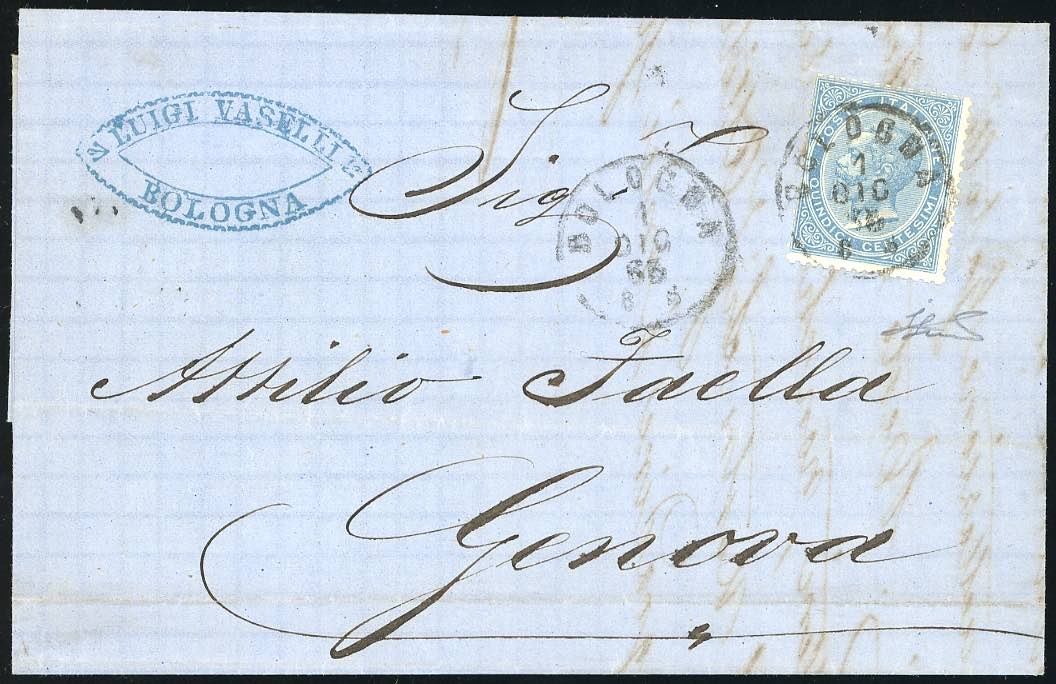 LUIGI VASELLI
BOLOGNA
Sig.r
Attilio Faella
Genova
BOLOGNA
1
DIC
65
8 S
POSTE ITALIANE
QUINDICI CENTESIMI
BOLOGNA
1
DIC